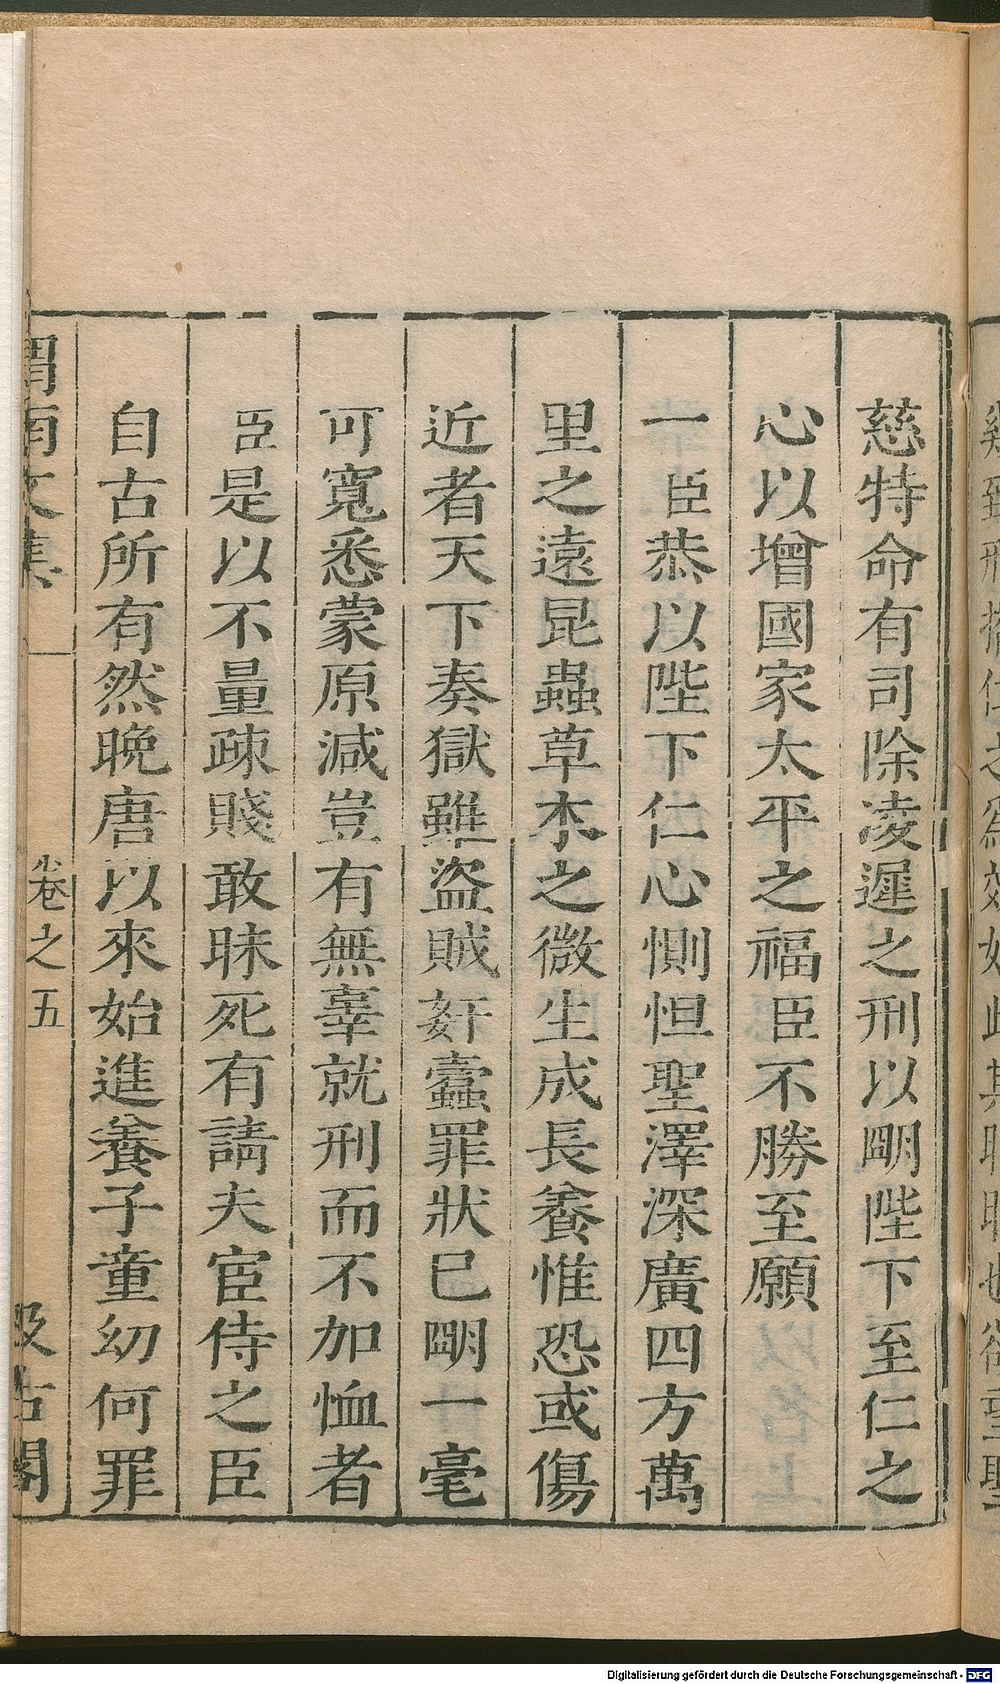 慈特命有司除凌遲之刑以朙陛下至仁之
心以增國家太平之福臣不勝至願
一臣恭以陛下仁心惻怛聖澤深廣四方萬
里之遠昆蟲草木之微生成長養惟恐或傷
近者天下奏獄雖盜賊奸蠹罪狀已朙一毫
可寬悉蒙原減豈有無辜就刑而不加恤者
臣是以不量疎賤敢昧死有請夫宦侍之臣
自古所有然晚唐以來始進養子童幼何罪
渭南文集
卷之五
汲古閣
Digitalisierung gefördert durch die Deutsche Forschungsgemeinschaft - DFG